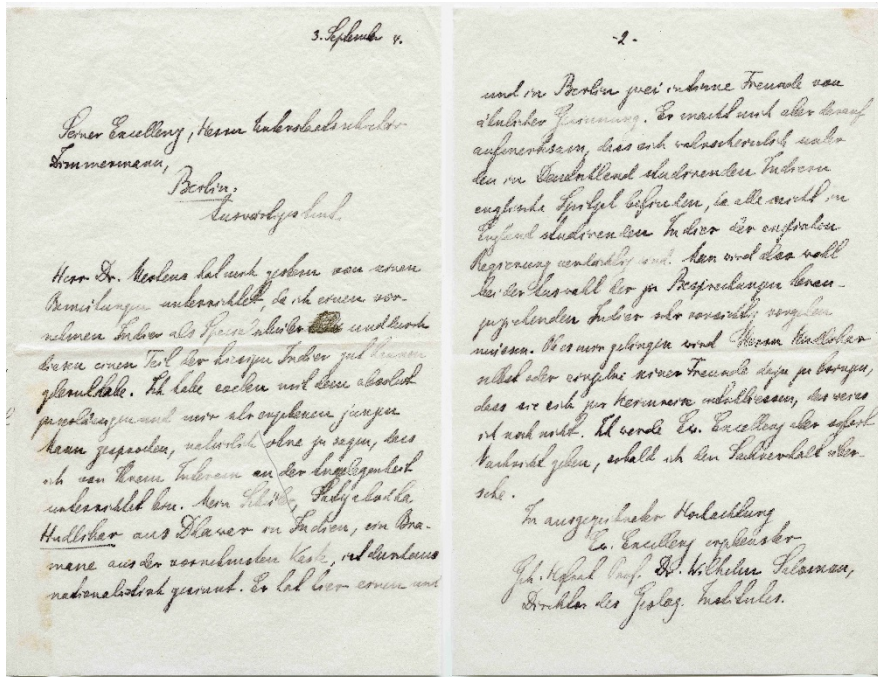 3. September 4.
Seiner Excellenz, Herrn Unterstaatssekretär
Zimmermann,
Berlin.
Auswärtiges Amt.
Herr Dr. Mertens hat mich gestern von einen
Bemühungen unterrichtet, da ich einen vor-
nehmen Indier als Spezialschüler und durch
diesen einen Teil der hiesigen Indier gut kennen
gelernt habe. Ich habe soeben mit dem absolut
zuverlässigen und mir sehr ergebenen jungen
Mann gesprochen, natürlich ohne zu sagen, dass
ich von Ihrem Interesse an der Angelegenheit
unterrichtet bin. Mein Schüler,
Hudlikar aus Dhawar in Indien, ein Bra-
mane aus der vornehmsten Kaste, ist durchaus
nationalistisch gesinnt. Er hat hier einen und
-2-
und in Berlin zwei intime Freunde von
ähnlicher Gesinnung. Er macht mich aber darauf
aufmerksam, dass sich wahrscheinlich unter
den in Deutschland studirenden Indiern
englische Spitzel befinden, da alle nicht in
England studirenden Indier der englischen
Regierung verdächtig sind. Man wird also wohl
bei der Auswahl der zu Besprechungen heran-
zuziehenden Indier sehr vorsichtig vorgehen
müssen. Ob es mir gelingen wird Herrn Hudlikar
selbst oder einzelne seiner Freunde dazu zu bringen,
dass sie sich zur Heimreise entschliessen, das weiss
ich noch nicht. Ich werde Ew. Excellenz aber sofort
Nachricht geben, sobald ich den Sachverhalt über-
sehe.
In ausgezeichneter Hochachtung
Ew. Excellenz ergebenster
Geh. Hofrat Prof. Dr. Wilhelm Salomon,
Direktor des Geolog. Institutes.